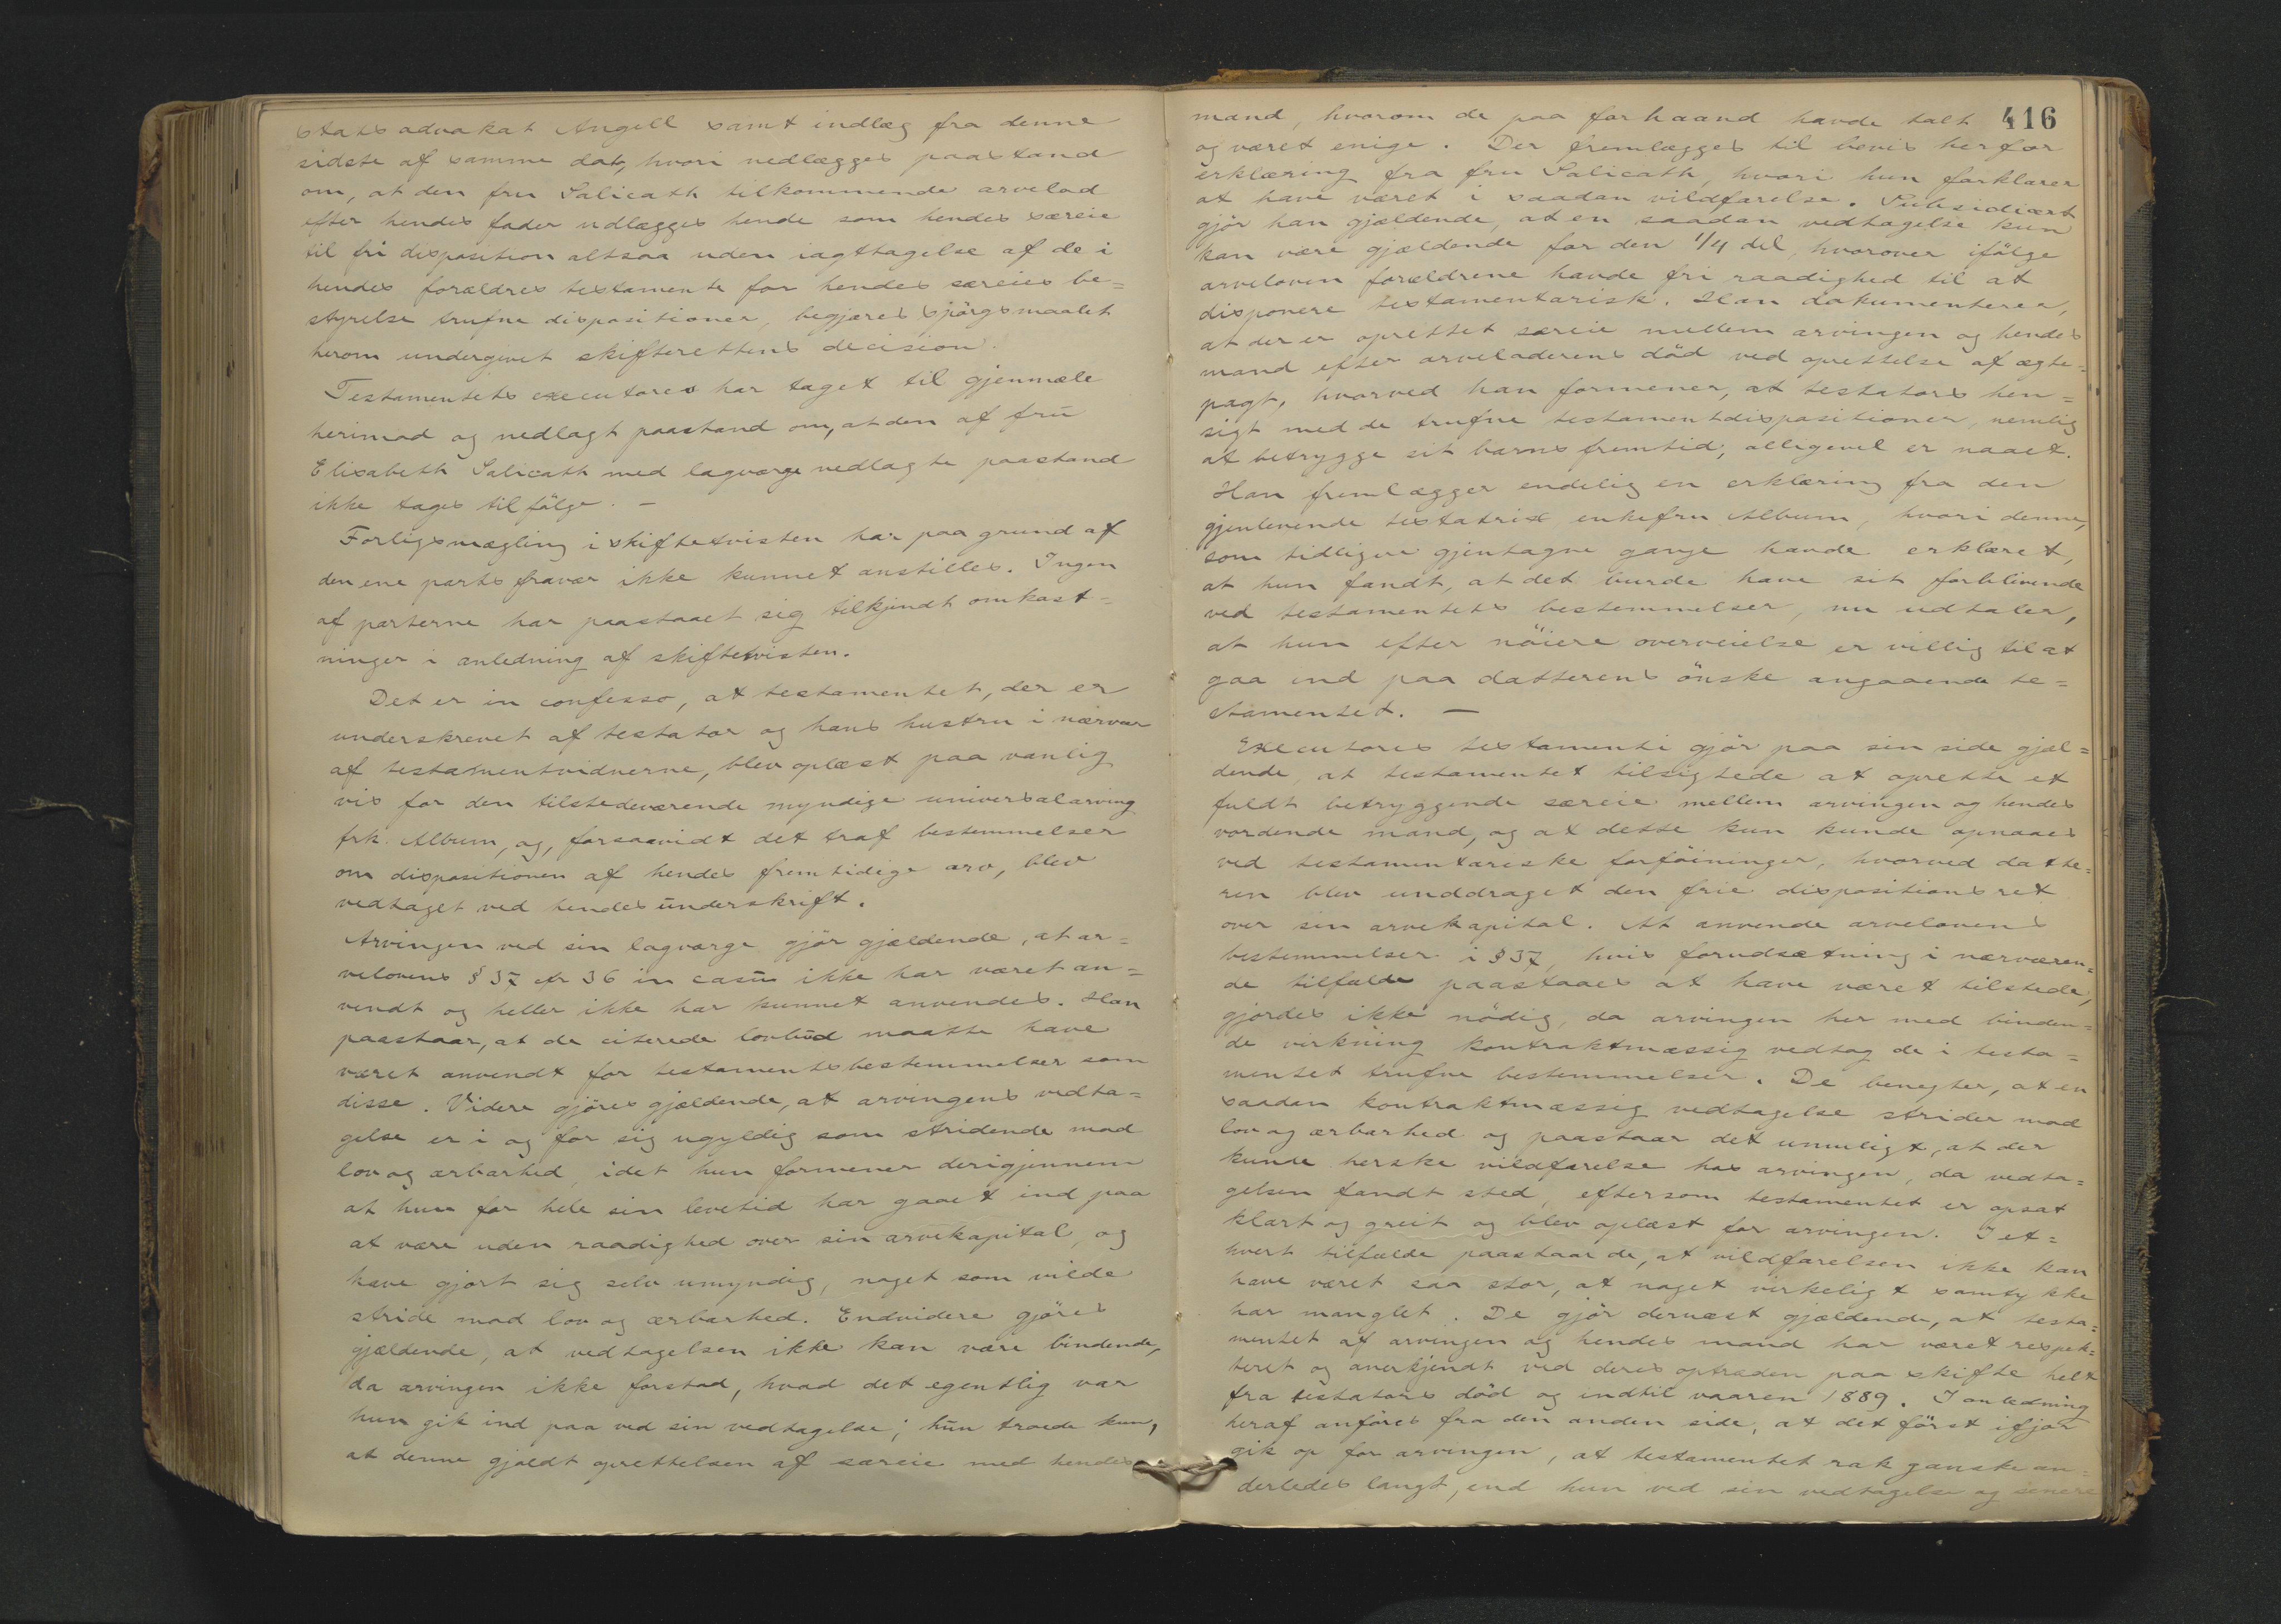 statsadvokat Angell samt indlæg fra denne
sidste af samme dato, hvori nedlægges paastand
om, at den fru Salicath tilkommende arvelod
efter hendes fader udlægges hende som hendes særeie
til fri disposition altsaa uden iagttagelse af de i
hendes forældres testamente for hendes særeies be=
styrelse trufne dispositioner, begjæres spörgsmaalet
herom undergivet skifterettens decision.
Testamentets executores har taget til gjenmæle
herimod og nedlagt paastand om, at den af fru
Elisabeth Salicath med lagværge nedlagte paastand
ikke tages tilfölge. —
Forligsmægling i skiftetvisten har paa grund af
den ene parts fravær ikke kunnet anstilles. Ingen
af parterne har paastaaet sig tilkjendt omkost=
ninger i anledning af skiftetvisten.
Det er in confesso, at testamentet, der er
underskrevet af testator og hans hustru i nærvær
af testamentvidnerne, blev oplæst paa vanlig
vis for den tilstedeværende myndige universalarving
frk. Album, og, forsaavidt det traf bestemmelser
om dispositionen af hendes fremtidige arv, blev
vedtaget ved hendes underskrift.
Arvingen ved sin lagværge gjör gjældende, at ar=
velovens § 37 cfr 36 in casu ikke har været an=
vendt og heller ikke har kunnet anvendes. Han
paastaar, at de citerede lovbud maatte have
været anvendt for testamentsbestemmelser som
disse. Videre gjöres gjældende, at arvingens vedta=
gelse er i og for sig ugyldig som stridende mod
lov og ærbarhed, idet hun formener derigjennem
at hun for hele sin levetid har gaaet ind paa
at være uden raadighed over sin arvekapital, og
have gjort sig selv umyndig, noget som vilde
stride mod lov og ærbarhed. Endvidere gjöres
gjældende, at vedtagelsen ikke kan være bindende,
da arvingen ikke forstod, hvad det egentlig var
hun gik ind paa ved sin vedtagelse; hun troede kun,
at denne gjaldt oprettelsen af særeie med hendes
416
mand, hvorom de paa forhaand havde talt
og været enige. Der fremlægges til bevis herfor
erklæring fra fru Salicath, hvori hun forklarer
at have været i saadan vildfarelse. Subsidiært
gjör han gjældende, at en saadan vedtagelse kun
kan være gjældende for den 1/4 del, hvorover ifölge
arveloven forældrene havde fri raadighed til at
disponere testamentarisk. Han dokumenterer,
at der er oprettet særeie mellem arvingen og hendes
mand efter arveladerens död ved oprettelse af ægte=
pagt, hvorved han formener, at testators hen=
sigt med de trufne testamentdispositioner, nemlig
at betrygge sit barns fremtid, alligevel er naaet.
Han fremlægger endelig en erklæring fra den
gjenlevende testatrix, enkefru Album, hvori denne,
som tidligere gjentagne gange havde erklæret,
at hun fandt, at det burde have sit forblivende
ved testamentets bestemmelser, nu udtaler,
at hun efter nöiere overveielse er villig til at
gaa ind paa datterens önske angaaende te=
stamentet. —
Executores testamenti gjör paa sin side gjæl=
dende, at testamentet tilsigtede at oprette et
fuldt betryggende særeie mellem arvingen og hendes
vordende mand, og at dette kun kunde opnaaes
ved testamentariske forföininger, hvorved datte=
ren blev unddraget den frie dispositionsret
over sin arvekapital. At anvende arvelovens
bestemmelser i § 37, hvis forudsætning i nærværen=
de tilfælde paastaaes at have været tilstede,
gjordes ikke nödig, da arvingen her med binden=
de virkning kontraktmæssig vedtog de i testa=
mentet trufne bestemmelser. De benegter, at en
saadan kontraktmæssig vedtagelse strider mod
lov og ærbarhed og paastaar det umuligt, at der
kunde herske vildfarelse hos arvingen, da vedta=
gelsen fandt sted, eftersom testamentet er opsat
klart og greit og blev oplæst for arvingen. I et=
hvert tilfælde paastaar de, at vildfarelsen ikke kan
have været saa stor, at noget virkeligt samtykke
har manglet. De gjör dernæst gjældende, at testa=
mentet af arvingen og hendes mand har været respek=
teret og anerkjendt ved deres optræden paa skifte helt
fra testators död og indtil vaaren 1889. I anledning
heraf anföres fra den anden side, at det först ifjor
gik op for arvingen, at testamentet rak ganske an=
derledes langt, end hun ved sin vedtagelse og senere